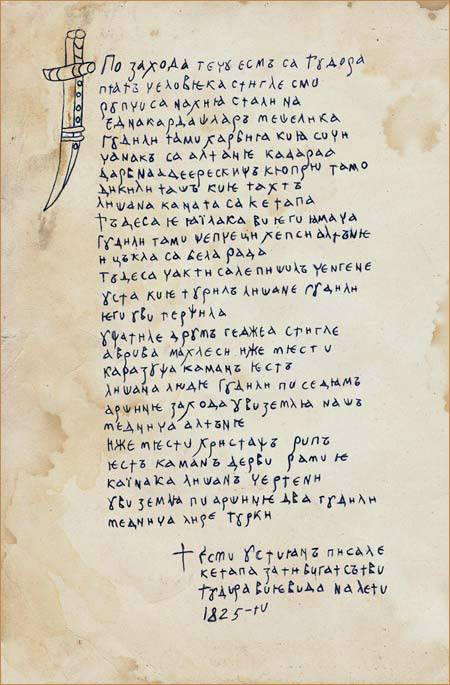 По захода течу есмъ са тудора
птатъ человека стигле смо
рупчи са нахию стали на
еднакардашларъ мешелика
гудили таму харвига кию сочи
чанакъ са алтание кадараа
дарвенаадеерескичъ кюпрю тамо
дикили ташъ кию тахтъ
лишана каната са кетапа
тъдеса ю юилака ви юги юмача
гудили таму чепчеци хепси алтъню
и цъкла са бела рада
тудеса чакти салепишолъ ченгене
уста кию турилъ лишане гудили
юги уви терзила
учатиле друмъ геджеа стигле
аврива махлеси иже мюсту
каразуча каманъ юсть
лишана людю гудили пи седюмъ
аршиню захода уви землю нашъ
медница алтъню
иже мюсти христачъ рипъ
юсть каманъ дерви рами ю
каинака лишанъ чертени
уви земли пи аршиню два гудили
медница лире турки
ести устиянъ писале
кетапа зати бигатсътви
тудира виювида на лету
1825-ти